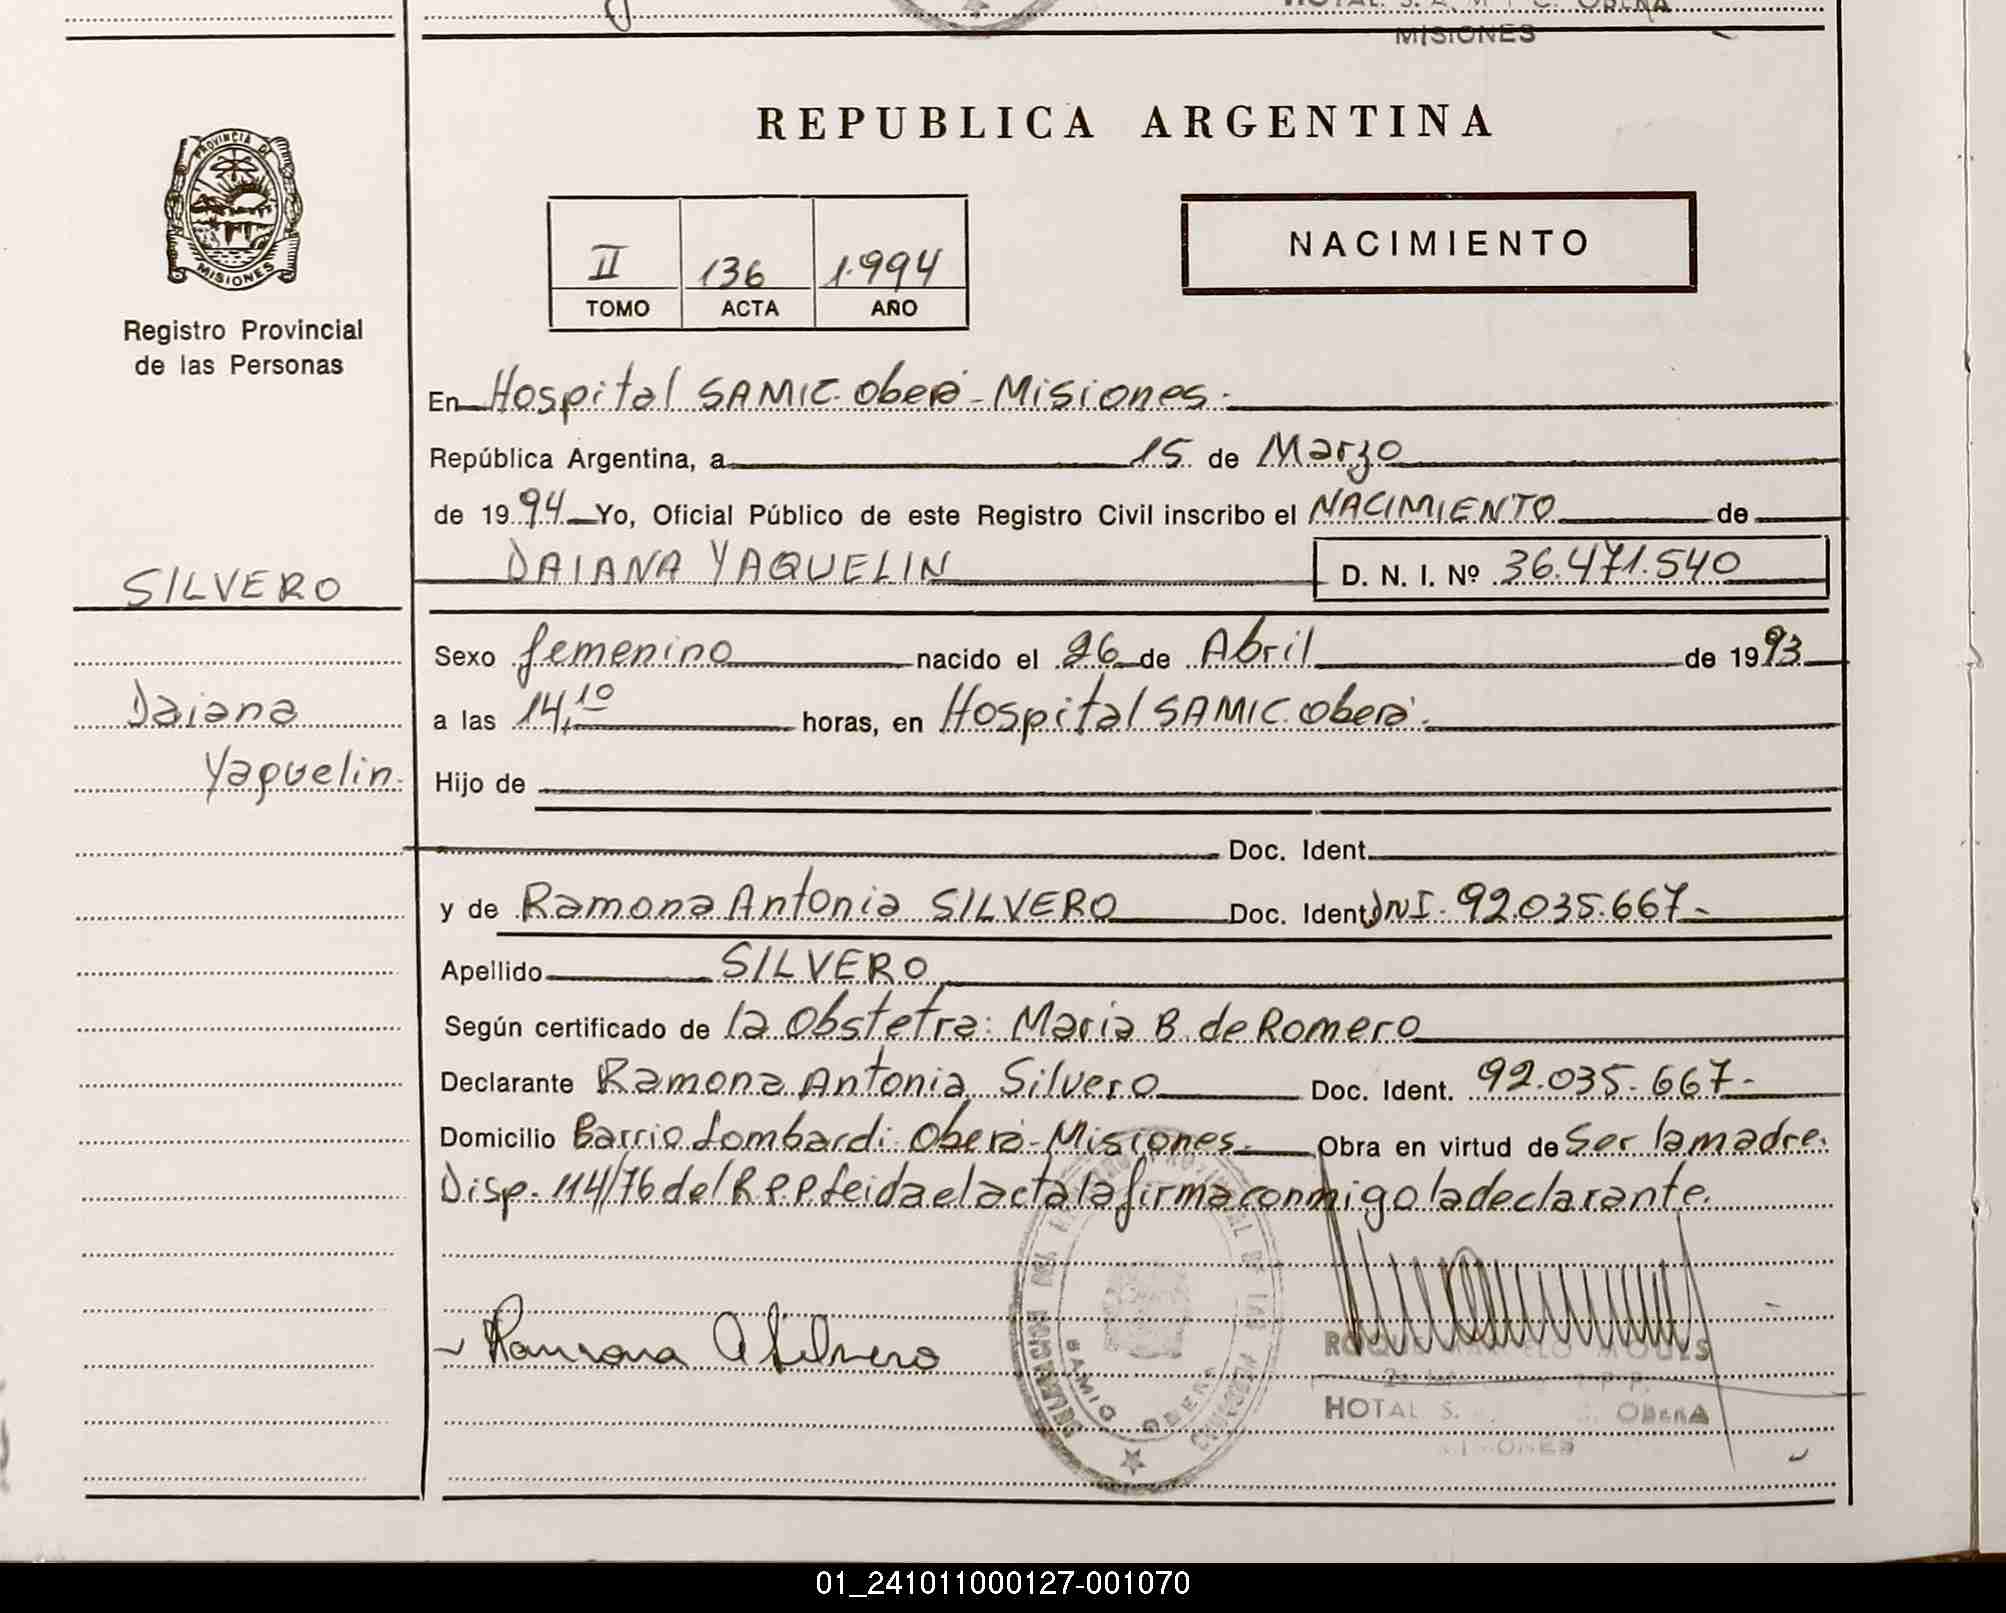 HOTAL. S. A. M I C. OBERA
MISIONES
REPUBLICA ARGENTINA
PROVINCIA DE
MISIONES
Registro Provincial
de las Personas
II 136 1.994
TOMO ACTA AÑO
NACIMIENTO
En Hospital SAMIC. Oberá - Misiones.
República Argentina, a 15 de Marzo
de 1994 Yo, Oficial Público de este Registro Civil inscribo el NACIMIENTO de
DAIANA YAQUELIN D. N. I. Nº 36.471.540
SILVERO
Daiana
Yaquelin.
Sexo femenino nacido el 26 de Abril de 1993
a las 14,10 horas, en Hospital SAMIC. Oberá.
Hijo de
Doc. Ident.
y de Ramona Antonia SILVERO Doc. Ident. DNI. 92.035.667.-
Apellido SILVERO
Según certificado de la Obstetra: Maria B. de Romero
Declarante Ramona Antonia Silvero Doc. Ident. 92.035.667-
Domicilio Barrio Lombardi. Oberá - Misiones. Obra en virtud de Ser la madre.
Disp. 114/76 del R P P Leida el acta la firma conmigo la declarante.
Ramona A Silvero
SAMIC OBERA
HOTAL S. OBERA
01_241011000127-001070